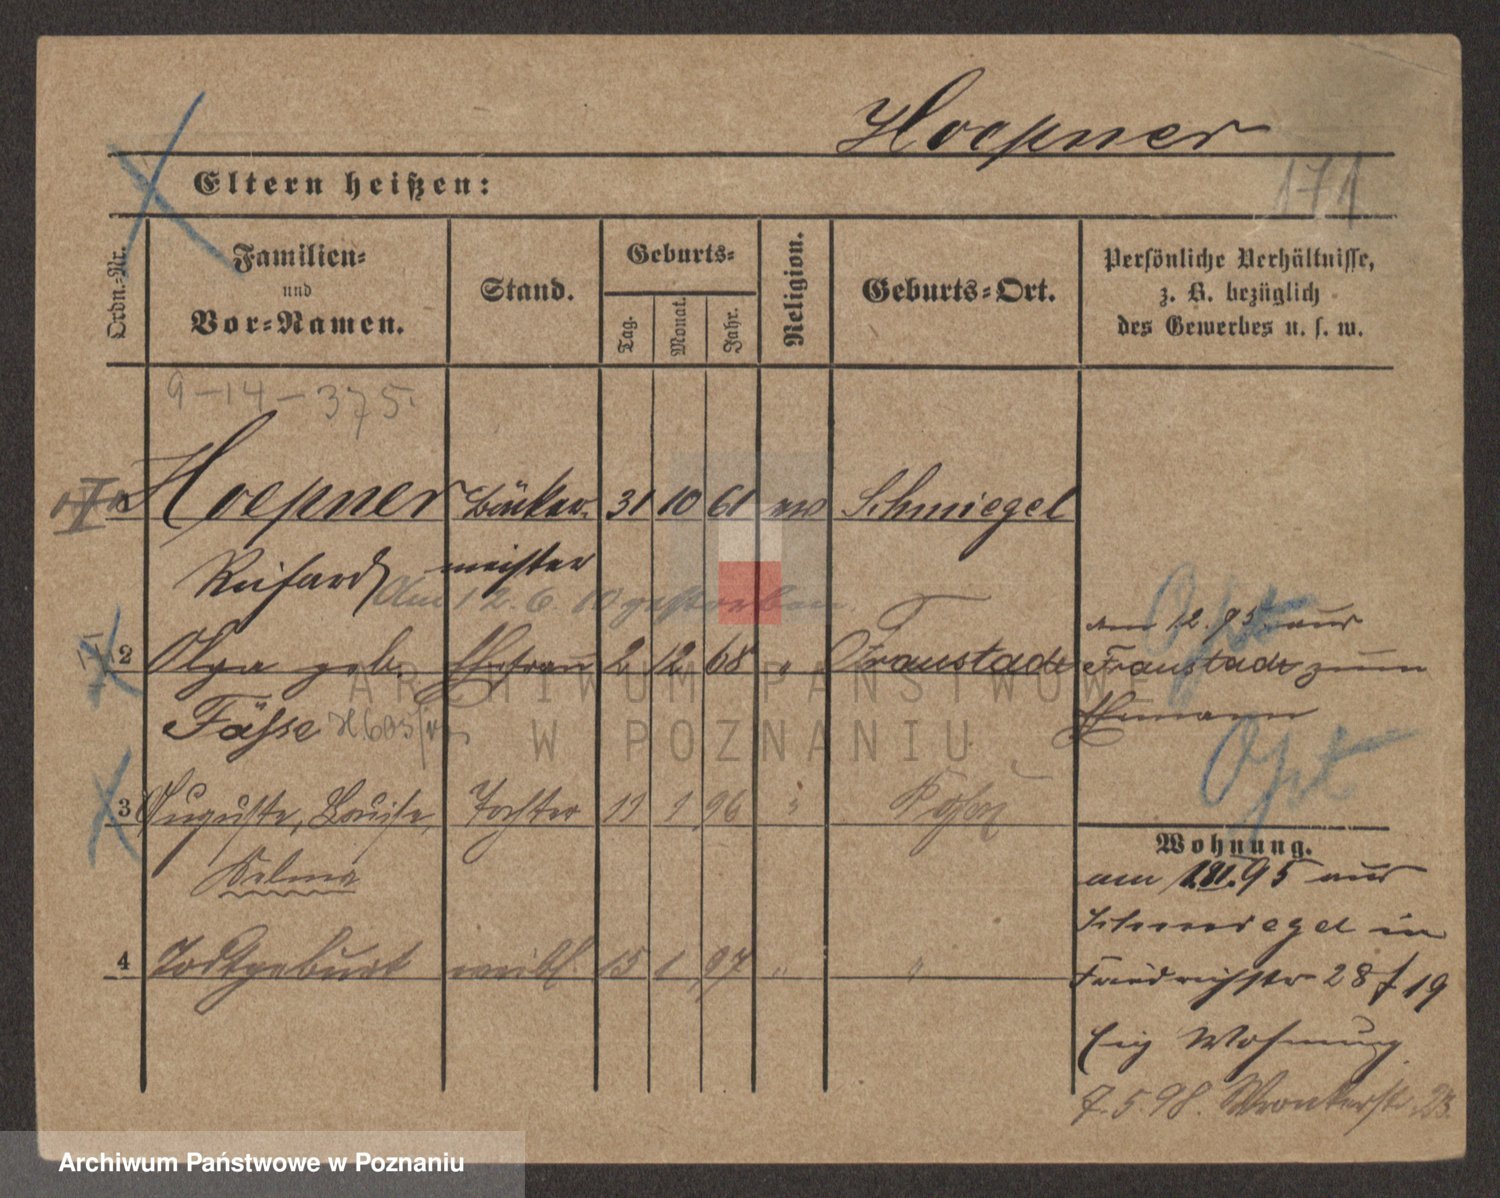 Hoepner
171
Eltern heißen:
Ordn.-Nr.
Familien-
und
Vor-Namen.
Stand.
Geburts-
Tag.
Monat.
Jahr.
Religion.
Geburts-Ort.
Persönliche Verhältnisse,
z. B. bezüglich
des Gewerbes u. s. w.
9-14-375
Hoepner Bäcker- 31 10 61 ev Schmiegel
Richard meister
Am 12.6.10 gestorben.
am 12.95 aus
2 Olga geb. Ehefrau 2 12 68 " Fraustadt
Fraustadt zum
Fässe
Ehemann
3 Auguste, Louise, Tochter 11 1 96 " Posen
Selma
Wohnung.
am 95 aus
Schmiegel in
4 Todtgeburt weibl. 15 1 97 " "
Friedrichstr 28 f 19
Eig Wohnung
7.5.98. Wronkerstr. 23.
ARCHIWUM PAŃSTWOWE
W POZNANIU
Archiwum Państwowe w Poznaniu